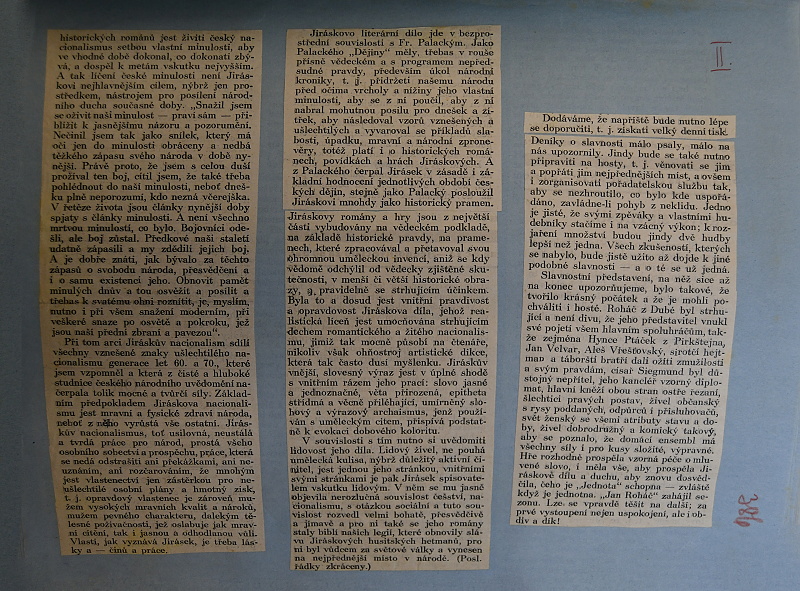 historických románů jest živiti český na-
cionalismus setbou vlastní minulosti, aby
ve vhodné době dokonal, co dokonati zbý-
vá, a dospěl k metám vskutku nejvyšším.
A tak líčení české minulosti není Jirás-
kovi nejhlavnějším cílem, nýbrž jen pro-
středkem, nástrojem pro posílení národ-
ního ducha současné doby. „Snažil jsem
se oživit naši minulost — praví sám — při-
blížit k jasnějšímu názoru a pozorumění.
Nečinil jsem tak jako snílek, který má
oči jen do minulosti obráceny a nedbá
těžkého zápasu svého národa v době ny-
nější. Právě proto, že jsem s celou duší
prožíval ten boj, cítil jsem, že také třeba
pohlédnout do naší minulosti, neboť dneš-
ku plně neporozumí, kdo nezná včerejška.
V řetěze života jsou články nynější doby
spjaty s články minulosti. A není všechno
mrtvou minulostí, co bylo. Bojovníci ode-
šli, ale boj zůstal. Předkové naši staletí
udatně zápasili a my zdědili jejich boj.
A je dobře znáti, jak bývalo za těchto
zápasů o svobodu národa, přesvědčení a
i o samu existenci jeho. Obnovit paměť
minulých dnův a tou osvěžit a posílit a
třebas k svatému ohni roznítit, je, myslím,
nutno i při všem snažení moderním, při
veškeré snaze po osvětě a pokroku, jež
jsou naší přední zbraní a pavezou“.
Při tom arci Jiráskův nacionalism sdílí
všechny vznešené znaky ušlechtilého na-
cionalismu generace let 60. a 70., které
jsem vzpomněl a která z čisté a hluboké
studnice českého národního uvědomění na-
čerpala tolik mocné a tvůrčí síly. Základ-
ním předpokladem Jiráskova nacionalis-
mu jest mravní a fysické zdraví národa,
neboť z něho vyrůstá vše ostatní. Jirás-
kův nacionalismus, toť usilovná, neustálá
a tvrdá práce pro národ, prostá všeho
osobního sobectví a prospěchu, práce, která
se nedá odstrašit ani překážkami, ani ne-
uznáním, ani rozčarováním, že mnohým
jest vlastenectví jen zástěrkou pro ne-
ušlechtilé osobní plány a hmotný zisk,
t. j. opravdový vlastenec je zároveň mu-
žem vysokých mravních kvalit a nároků,
mužem pevného charakteru, dalekým tě-
lesné požívačnosti, jež oslabuje jak mrav-
ní cítění, tak i jasnou a odhodlanou vůli.
Vlasti, jak vyznává Jirásek, je třeba lás-
ky a — činů a práce.
Jiráskovo literární dílo jde v bezpro-
střední souvislosti s Fr. Palackým. Jako
Palackého „Dějiny“ měly, třebas v rouše
přísně vědeckém a s programem nepřed-
sudné pravdy, především úkol národní
kroniky, t. j. přidržeti našemu národu
před očima vrcholy a nížiny jeho vlastní
minulosti, aby se z ní poučil, aby z ní
nabral mohutnou posilu pro dnešek a zí-
třek, aby následoval vzorů vznešených a
ušlechtilých a vyvaroval se příkladů sla-
bosti, úpadku, mravní a národní zprone-
věry, totéž platí i o historických romá-
nech, povídkách a hrách Jiráskových. A
z Palackého čerpal Jirásek v zásadě i zá-
kladní hodnocení jednotlivých období čes-
kých dějin, stejně jako Palacký posloužil
Jiráskovi mnohdy jako historický pramen.
Jiráskovy romány a hry jsou z největší
části vybudovány na vědeckém podkladě,
na základě historické pravdy, na prame-
nech, které zpracovával a přetavoval svou
ohromnou uměleckou invencí, aniž se kdy
vědomě odchýlil od vědecky zjištěné sku-
tečnosti, v menší či větší historické obra-
zy, pravidelně se strhujícím účinkem.
Byla to a dosud jest vnitřní pravdivost
a opravdovost Jiráskova díla, jehož rea-
listická líceň jest umocňována strhujícím
dechem romantického a žitého nacionalis-
mu, jimiž tak mocně působí na čtenáře,
nikoliv však ohňostroj artistické dikce,
která tak často dusí myšlenku. Jiráskův
vnější, slovesný výraz jest v úplné shodě
s vnitřním rázem jeho prací: slovo jasné
a jednoznačné, věta přirozená, epitheta
střídmá a věcně přiléhající, umírněný slo-
hový a výrazový archaismus, jenž použí-
ván s uměleckým citem, přispívá podstat-
ně k evokaci dobového koloritu.
V souvislosti s tím nutno si uvědomiti
lidovost jeho díla. Lidový živel, ne pouhá
umělecká kulisa, nýbrž důležitý aktivní či-
nitel, jest jednou jeho stránkou, vnitřními
svými stránkami je pak Jirásek spisovate-
lem vskutku lidovým. V něm se mu jasně
objevila nerozlučná souvislost češství, na-
cionalismu, s otázkou sociální a tuto sou-
vislost rozvedl velmi bohatě, přesvědčivě
a jímavě a pro ni také se jeho romány
staly biblí našich legií, které obnovily slá-
vu Jiráskových husitských hetmanů, pro
ni byl vůdcem za světové války a vynesen
na nejpřednější místo v národě. (Posl.
řádky zkráceny.)
II.
Dodáváme, že napříště bude nutno lépe
se doporučiti, t. j. získati velký denní tisk.
Deníky o slavnosti málo psaly, málo na
nás upozornily. Jindy bude se také nutno
připraviti na hosty, t. j. věnovati se jim
a popřáti jim nejpřednějších míst, a ovšem
i zorganisovati pořadatelskou službu tak,
aby se nezhroutilo, co bylo kde uspořá-
dáno, zavládne-li pohyb z neklidu. Jedno
je jisté, že svými zpěváky a vlastními hu-
debníky stačíme i na vzácný výkon; k roz-
jaření množství budou jindy dvě hudby
lepší než jedna. Všech zkušeností, kterých
se nabylo, bude jistě užito až dojde k jiné
podobné slavnosti — a o té se už jedná.
Slavnostní představení, na něž sice až
na konec upozorňujeme, bylo takové, že
tvořilo krásný počátek a že je mohli po-
chváliti i hosté. Roháč z Dubé byl strhu-
jící a není divu, že jeho představitel vnukl
své pojetí všem hlavním spoluhráčům, tak-
že zejména Hynce Ptáček z Pirkštejna,
Jan Velvar, Aleš Vřešťovský, sirotčí hejt-
man a táborští bratři dali ožíti zmužilosti
a svým pravdám, císař Siegmund byl dů-
stojný nepřítel, jeho kancléř vzorný diplo-
mat, hlavní kněží obou stran ostře řezaní,
šlechtici pravých postav, živel občanský
s rysy poddaných, odpůrců i přisluhovačů,
svět ženský se všemi atributy stavu a do-
by, živel dobrodružný a komický takový,
aby se poznalo, že domácí ensembl má
všechny síly i pro kusy složité, výpravné.
Hře rozhodně prospěla vzorná péče o mlu-
vené slovo, i měla vše, aby prospěla Ji-
ráskově dílu a duchu, aby znovu dosvěd-
čila, čeho je „Jednota“ schopna — zvláště
když je jednotna. „Jan Roháč“ zahájil se-
zonu. Lze se vpravdě těšit na další; za
prvé vystoupení nejen uspokojení, ale i ob-
div a dík!